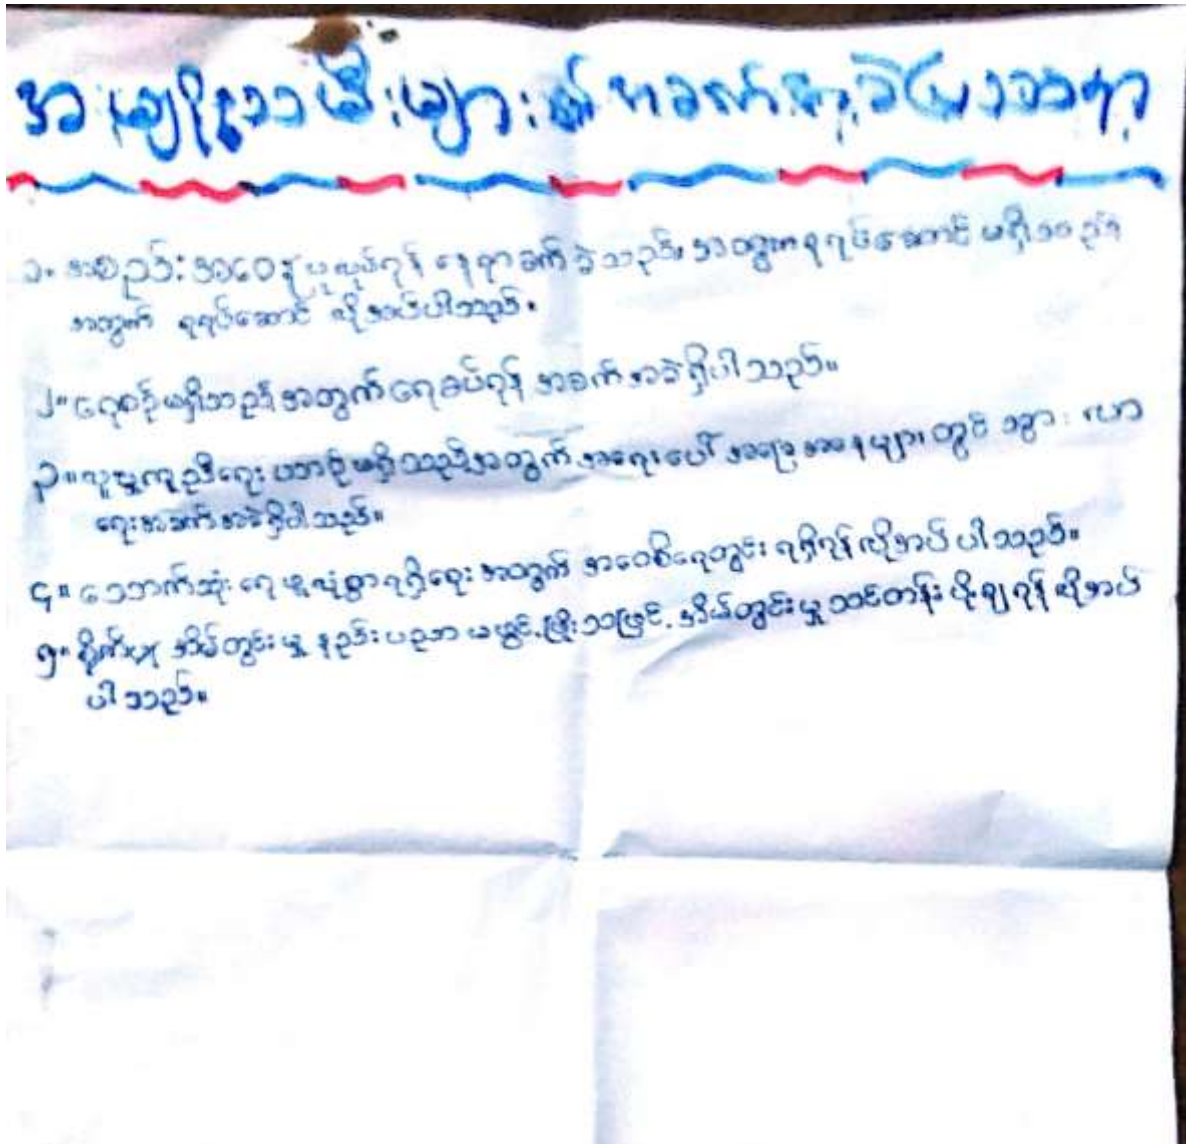 အမျိုးသမီးများ၏အခက်အခဲပြဿနာ
၁။ အစည်းအဝေး ပြုလုပ်ရန် နေရာခက်ခဲသည်၊ အတွက် ရပ်ဆောင် မရှိသည့်
အတွက် ရရပ်ဆောင် လိုအပ်ပါသည်။
၂။ ရေစင်မရှိသည့်အတွက်ရေခပ်ရန် အခက်အခဲရှိပါသည်။
၃။ လူမှုကူညီရေး ယာဉ်မရှိသည့်အတွက် အရေးပေါ် အခြေအနေများတွင် သွားလာ
ရေးအခက်အခဲရှိပါသည်။
၄။ သောက်သုံးရေ ဖူလုံစွာရရှိရေး အတွက် အဝီစိရေတွင်း ရရှိရန်လိုအပ်ပါသည်။
၅။ အိမ်တွင်းမှု နည်းပညာ မဖွင့်ဖြိုးသဖြင့် အိမ်တွင်းမှုသင်တန်း ပို့ချရန်လိုအပ်
ပါသည်။